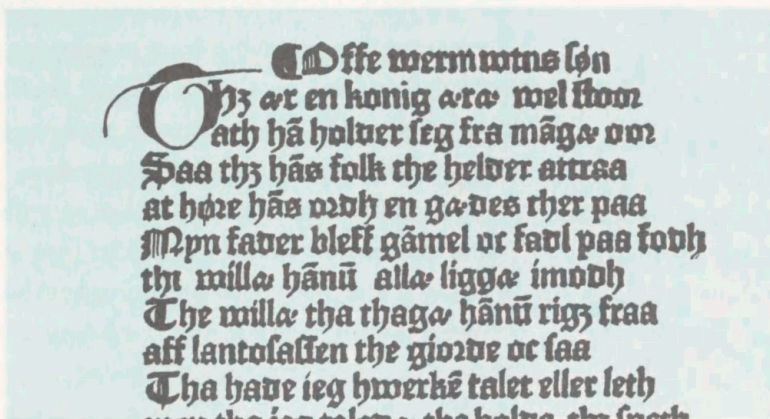 Offe wermwtns søn
Ohꝫ ær en konig æræ wel stoor
ath hā holder seg fra māgæ oor
Saa thꝫ hās folk the helder attraa
at høre hās ordh en gædes ther paa
Myn fader bleff gāmel oc fadl paa fodh
thi willæ hānū allæ liggæ imodh
The willæ tha thagæ hānū rigꝫ fraa
aff lantosassen the giorde oc saa
Tha hade ieg hwerkē talet eller leth